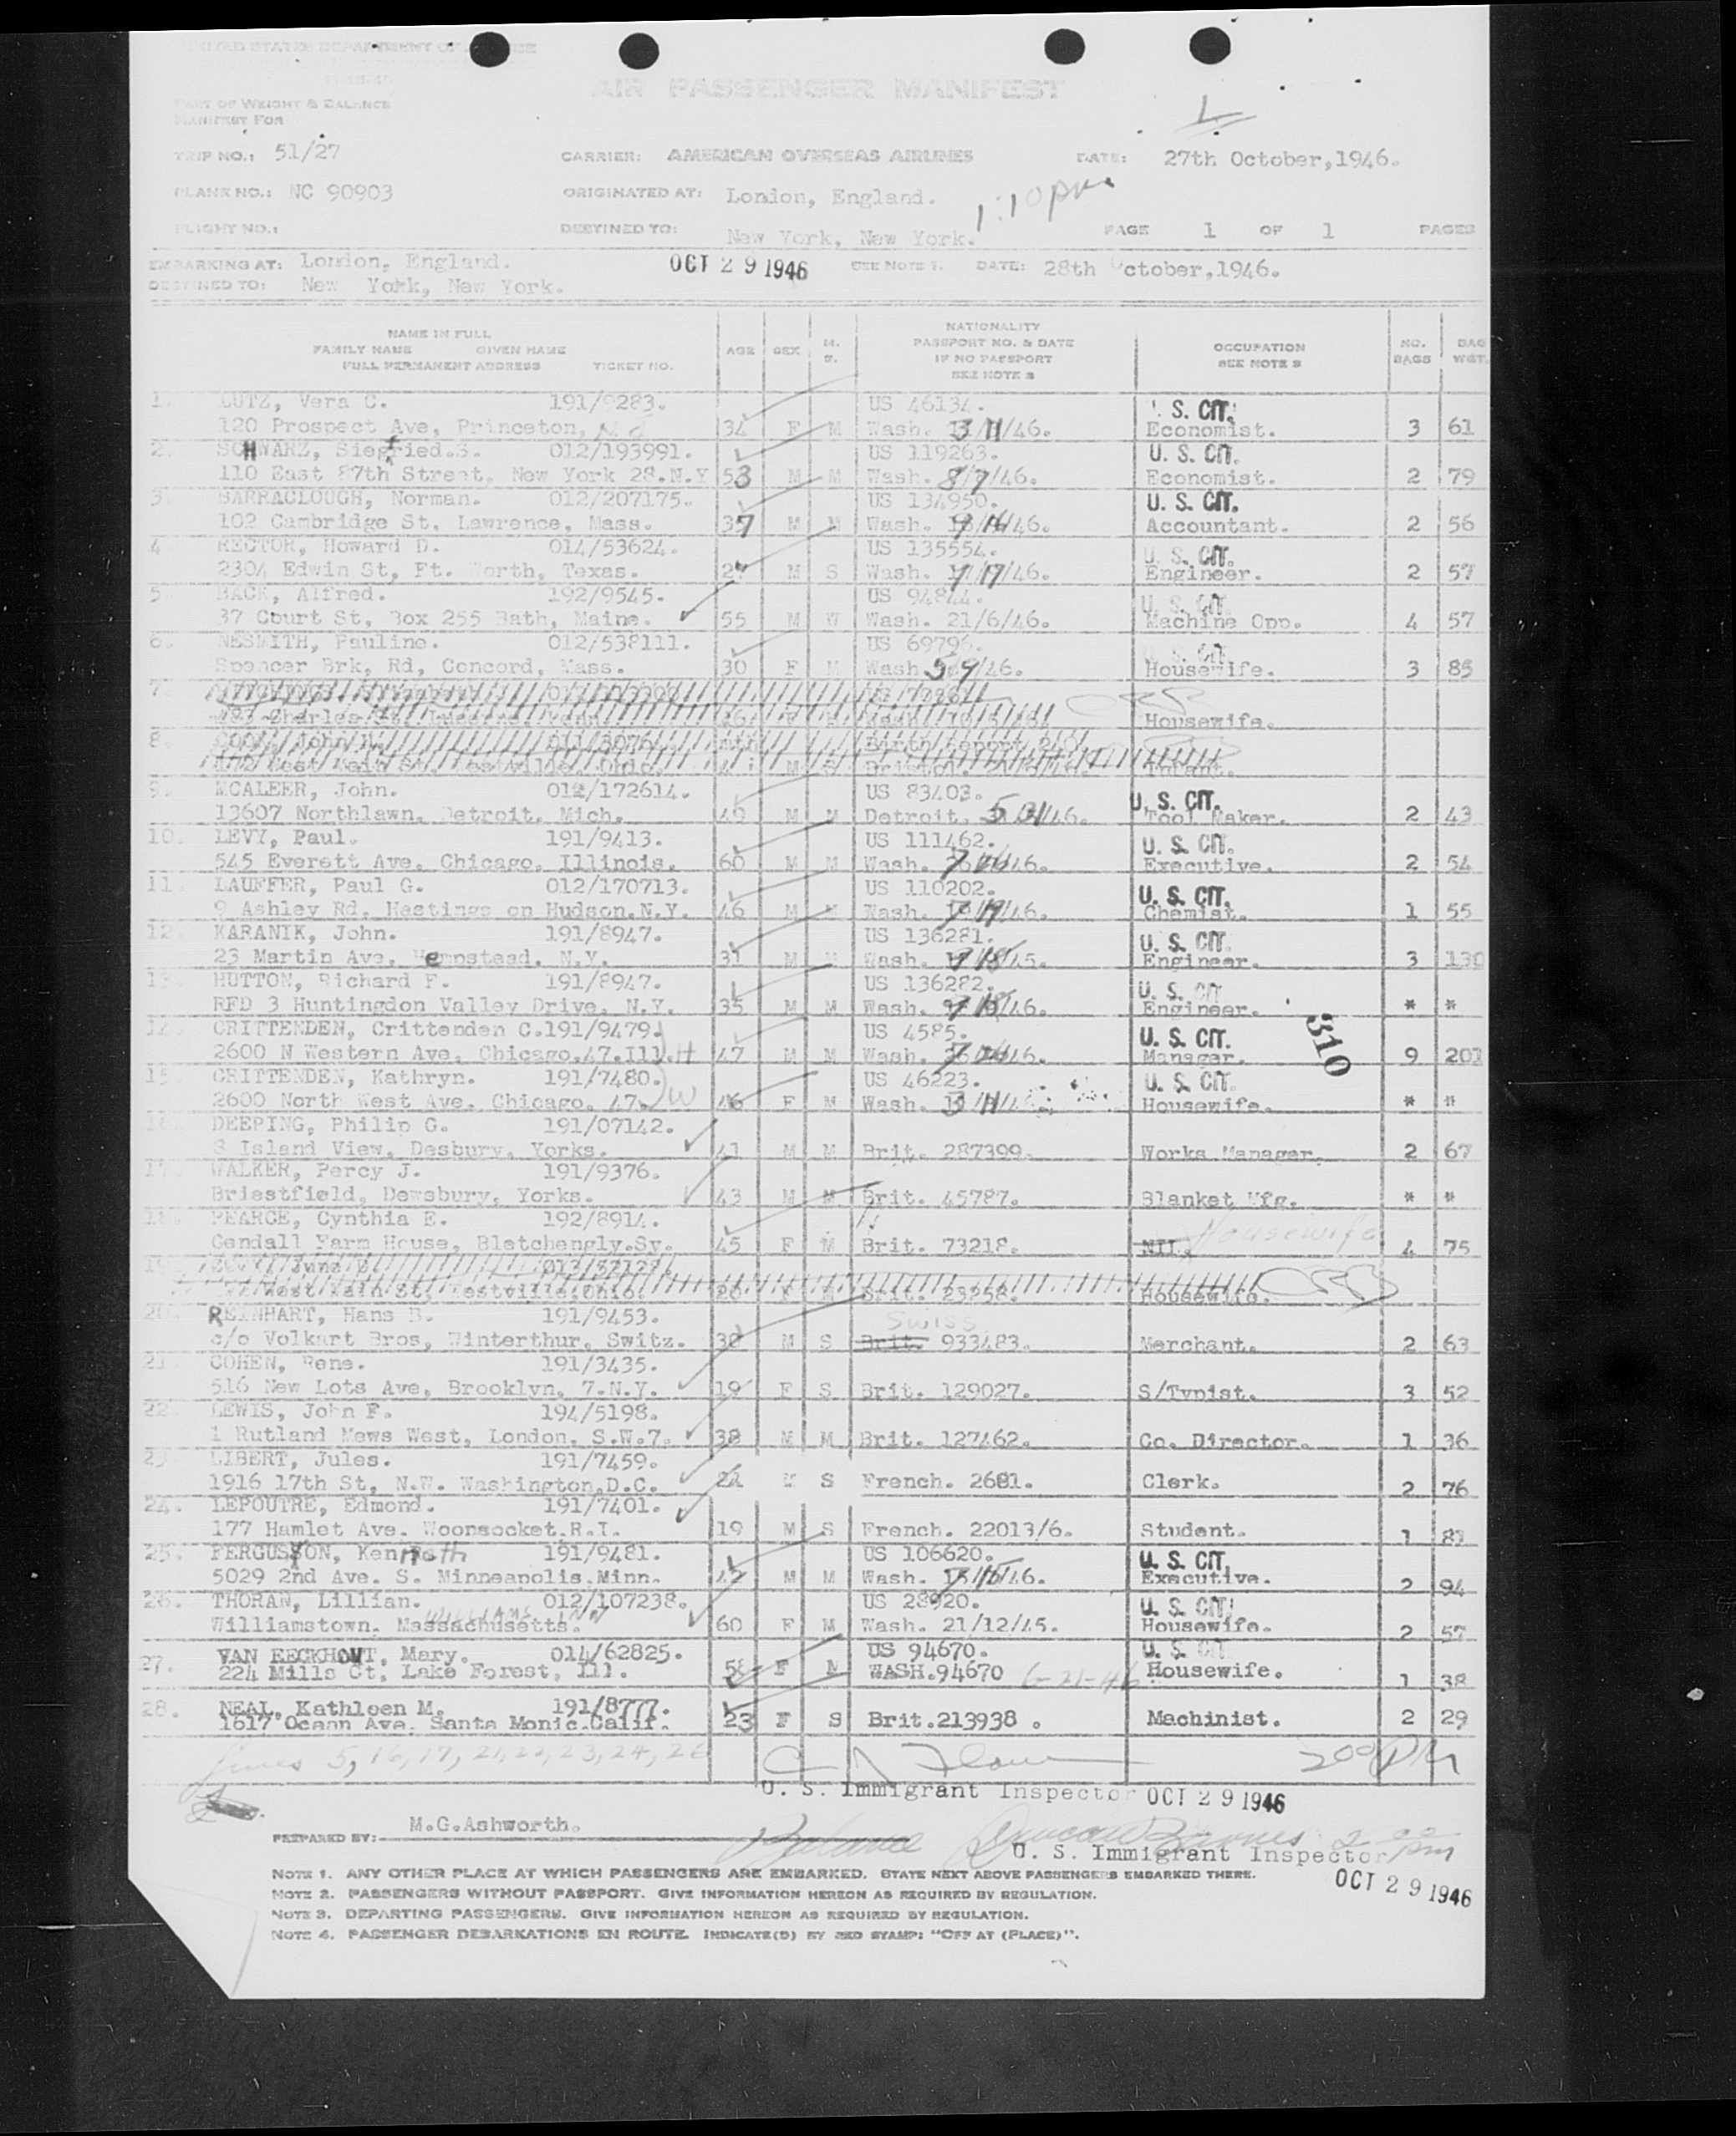 UNITED STATES DEPARTMENT OF
AIR PASSENGER MANIFEST
PART OF WEIGHT & BALANCE
MANIFEST FOR
TRIP NO.: 51/27 CARRIER: AMERICAN OVERSEAS AIRLINES DATE: 27th October,1946.
PLANE NO.: NC 90903 ORIGINATED AT: London, England. 1:10 pm
FLIGHT NO.: DESTINED TO: New York, New York. PAGE 1 OF 1 PAGES
EMBARKING AT: London, England. OCT 29 1946 SEE NOTE 1. DATE: 28th October,1946.
DESTINED TO: New York, New York.
NAME IN FULL
FAMILY NAME GIVEN NAME
FULL PERMANENT ADDRESS TICKET NO.
AGE SEX M. S.
NATIONALITY
PASSPORT NO. & DATE
IF NO PASSPORT
SEE NOTE 2
OCCUPATION
SEE NOTE 3
NO. BAGS BAG WGT.
1. LUTZ, Vera C. 191/9283. US 46134. U. S. CIT.
120 Prospect Ave, Princeton, 34 F M Wash. /46. Economist. 3 61
2. SCHWARZ, Siegfried.S. 012/193991. US 119263. U. S. CIT.
110 East 87th Street, New York 28.N.Y 53 M M Wash. 8/7/46. Economist. 2 79
3. BARRACLOUGH, Norman. 012/207175. US 134950. U. S. CIT.
102 Cambridge St, Lawrence, Mass. 37 M M Wash. 9/16/46. Accountant. 2 56
4. RECTOR, Howard D. 014/53624. US 135554. U. S. CIT.
2304 Edwin St, Ft. Worth, Texas. M S Wash. /17/46. Engineer. 2 57
5. BACK, Alfred. 192/9545. US 94844. U. S. CIT.
37 Court St, Box 255 Bath, Maine. 55 M W Wash. 21/6/46. Machine Opp. 4 57
6. NESMITH, Pauline. 012/538111. US 69796. U. S. CIT.
Spencer Brk, Rd, Concord, Mass. 30 F M Wash /46. Housewife. 3 85
7.
Charles St. Housewife.
8. John Birth Report
West Main St. Ohio. M S Bristol. Infant.
9. MCALEER, John. 012/172614. US 83403. U. S. CIT.
13607 Northlawn, Detroit, Mich. 49 M M Detroit. 5/31/46. Tool Maker. 2 43
10. LEVY, Paul. 191/9413. US 111462. U. S. CIT.
545 Everett Ave, Chicago, Illinois. 60 M M Wash. /46. Executive. 2 54
11. LAUFFER, Paul G. 012/170713. US 110202. U. S. CIT.
9 Ashley Rd, Hastings on Hudson.N.Y. 46 M M Wash. /46. Chemist. 1 55
12. KARANIK, John. 191/8947. US 136281. U. S. CIT.
23 Martin Ave, Hempstead, N.Y. 31 M M Wash. Engineer. 3 130
13. HUTTON, Richard F. 191/8947. US 136282. U. S. CIT
RFD 3 Huntingdon Valley Drive, N.Y. 35 M M Wash. /46. Engineer. * *
14. CRITTENDEN, Crittenden C.191/9479. US 4585. U. S. CIT.
2600 N Western Ave, Chicago.47.Ill. H 47 M M Wash. /46. Manager. 9 201
310
15. CRITTENDEN, Kathryn. 191/7480. US 46223. U. S. CIT.
2600 North West Ave. Chicago. 47. W 46 F M Wash. Housewife. * *
16. DEEPING, Philip G. 191/07142.
8 Island View, Desbury, Yorks. 41 M M Brit. 287399. Works Manager. 2 67
17. WALKER, Percy J. 191/9376.
Briestfield, Dewsbury, Yorks. 43 M M Brit. 45787. Blanket Mfg. * *
18. PEARCE, Cynthia E. 192/8914. Housewife
Cendall Farm House, Bletchengly.Sy. 45 F M Brit. 73218. NIL. 4 75
19. June
West Main St, Ohio. 20 F M Brit. 23258. Housewife.
20. REINHART, Hans R. 191/9453. Swiss
c/o Volkart Bros, Winterthur, Switz. 38 M S Brit. 933483. Merchant. 2 63
21. COHEN, Rene. 191/3435.
516 New Lots Ave, Brooklyn, 7.N.Y. 19 F S Brit. 129027. S/Typist. 3 52
22. LEWIS, John F. 194/5198.
1 Rutland Mews West, London, S.W.7. 38 M M Brit. 127462. Co. Director. 1 36
23. LIBERT, Jules. 191/7459.
1916 17th St, N.W. Washington,D.C. M S French. 2681. Clerk. 2 76
24. LEPOUTRE, Edmond. 191/7401.
177 Hamlet Ave. Woonsocket.R.I. 19 M S French. 22013/6. Student. 1
25. FERGUSON, Kenneth 191/9481. US 106620. U. S. CIT.
5029 2nd Ave. S. Minneapolis.Minn. M M Wash. /46. Executive. 2 94
26. THORAN, Lillian. 012/107238. US 28920. U. S. CIT!
WILLIAMS INN
Williamstown, Massachusetts. 60 F M Wash. 21/12/45. Housewife. 2 57
27. VAN EECKHOUT, Mary. 014/62825. US 94670. U. S. CIT
224 Mills Ct, Lake Forest, Ill. F M WASH.94670 6-21-46 Housewife. 1 38
28. NEAL, Kathleen M. 191/8777.
1617 Ocean Ave. Santa Monic.Calif. 23 F S Brit.213938 . Machinist. 2 29
Lines 5, 16, 17, 21, 22, 23, 24, 26 2 00 PM
U. S. Immigrant Inspector OCT 29 1946
PREPARED BY: M.G.Ashworth.
Balance 2 00 pm
U. S. Immigrant Inspector
OCT 29 1946
NOTE 1. ANY OTHER PLACE AT WHICH PASSENGERS ARE EMBARKED. STATE NEXT ABOVE PASSENGERS EMBARKED THERE.
NOTE 2. PASSENGERS WITHOUT PASSPORT. GIVE INFORMATION HEREON AS REQUIRED BY REGULATION.
NOTE 3. DEPARTING PASSENGERS. GIVE INFORMATION HEREON AS REQUIRED BY REGULATION.
NOTE 4. PASSENGER DEBARKATIONS EN ROUTE. INDICATE(D) BY RED STAMP: "OFF AT (PLACE)".